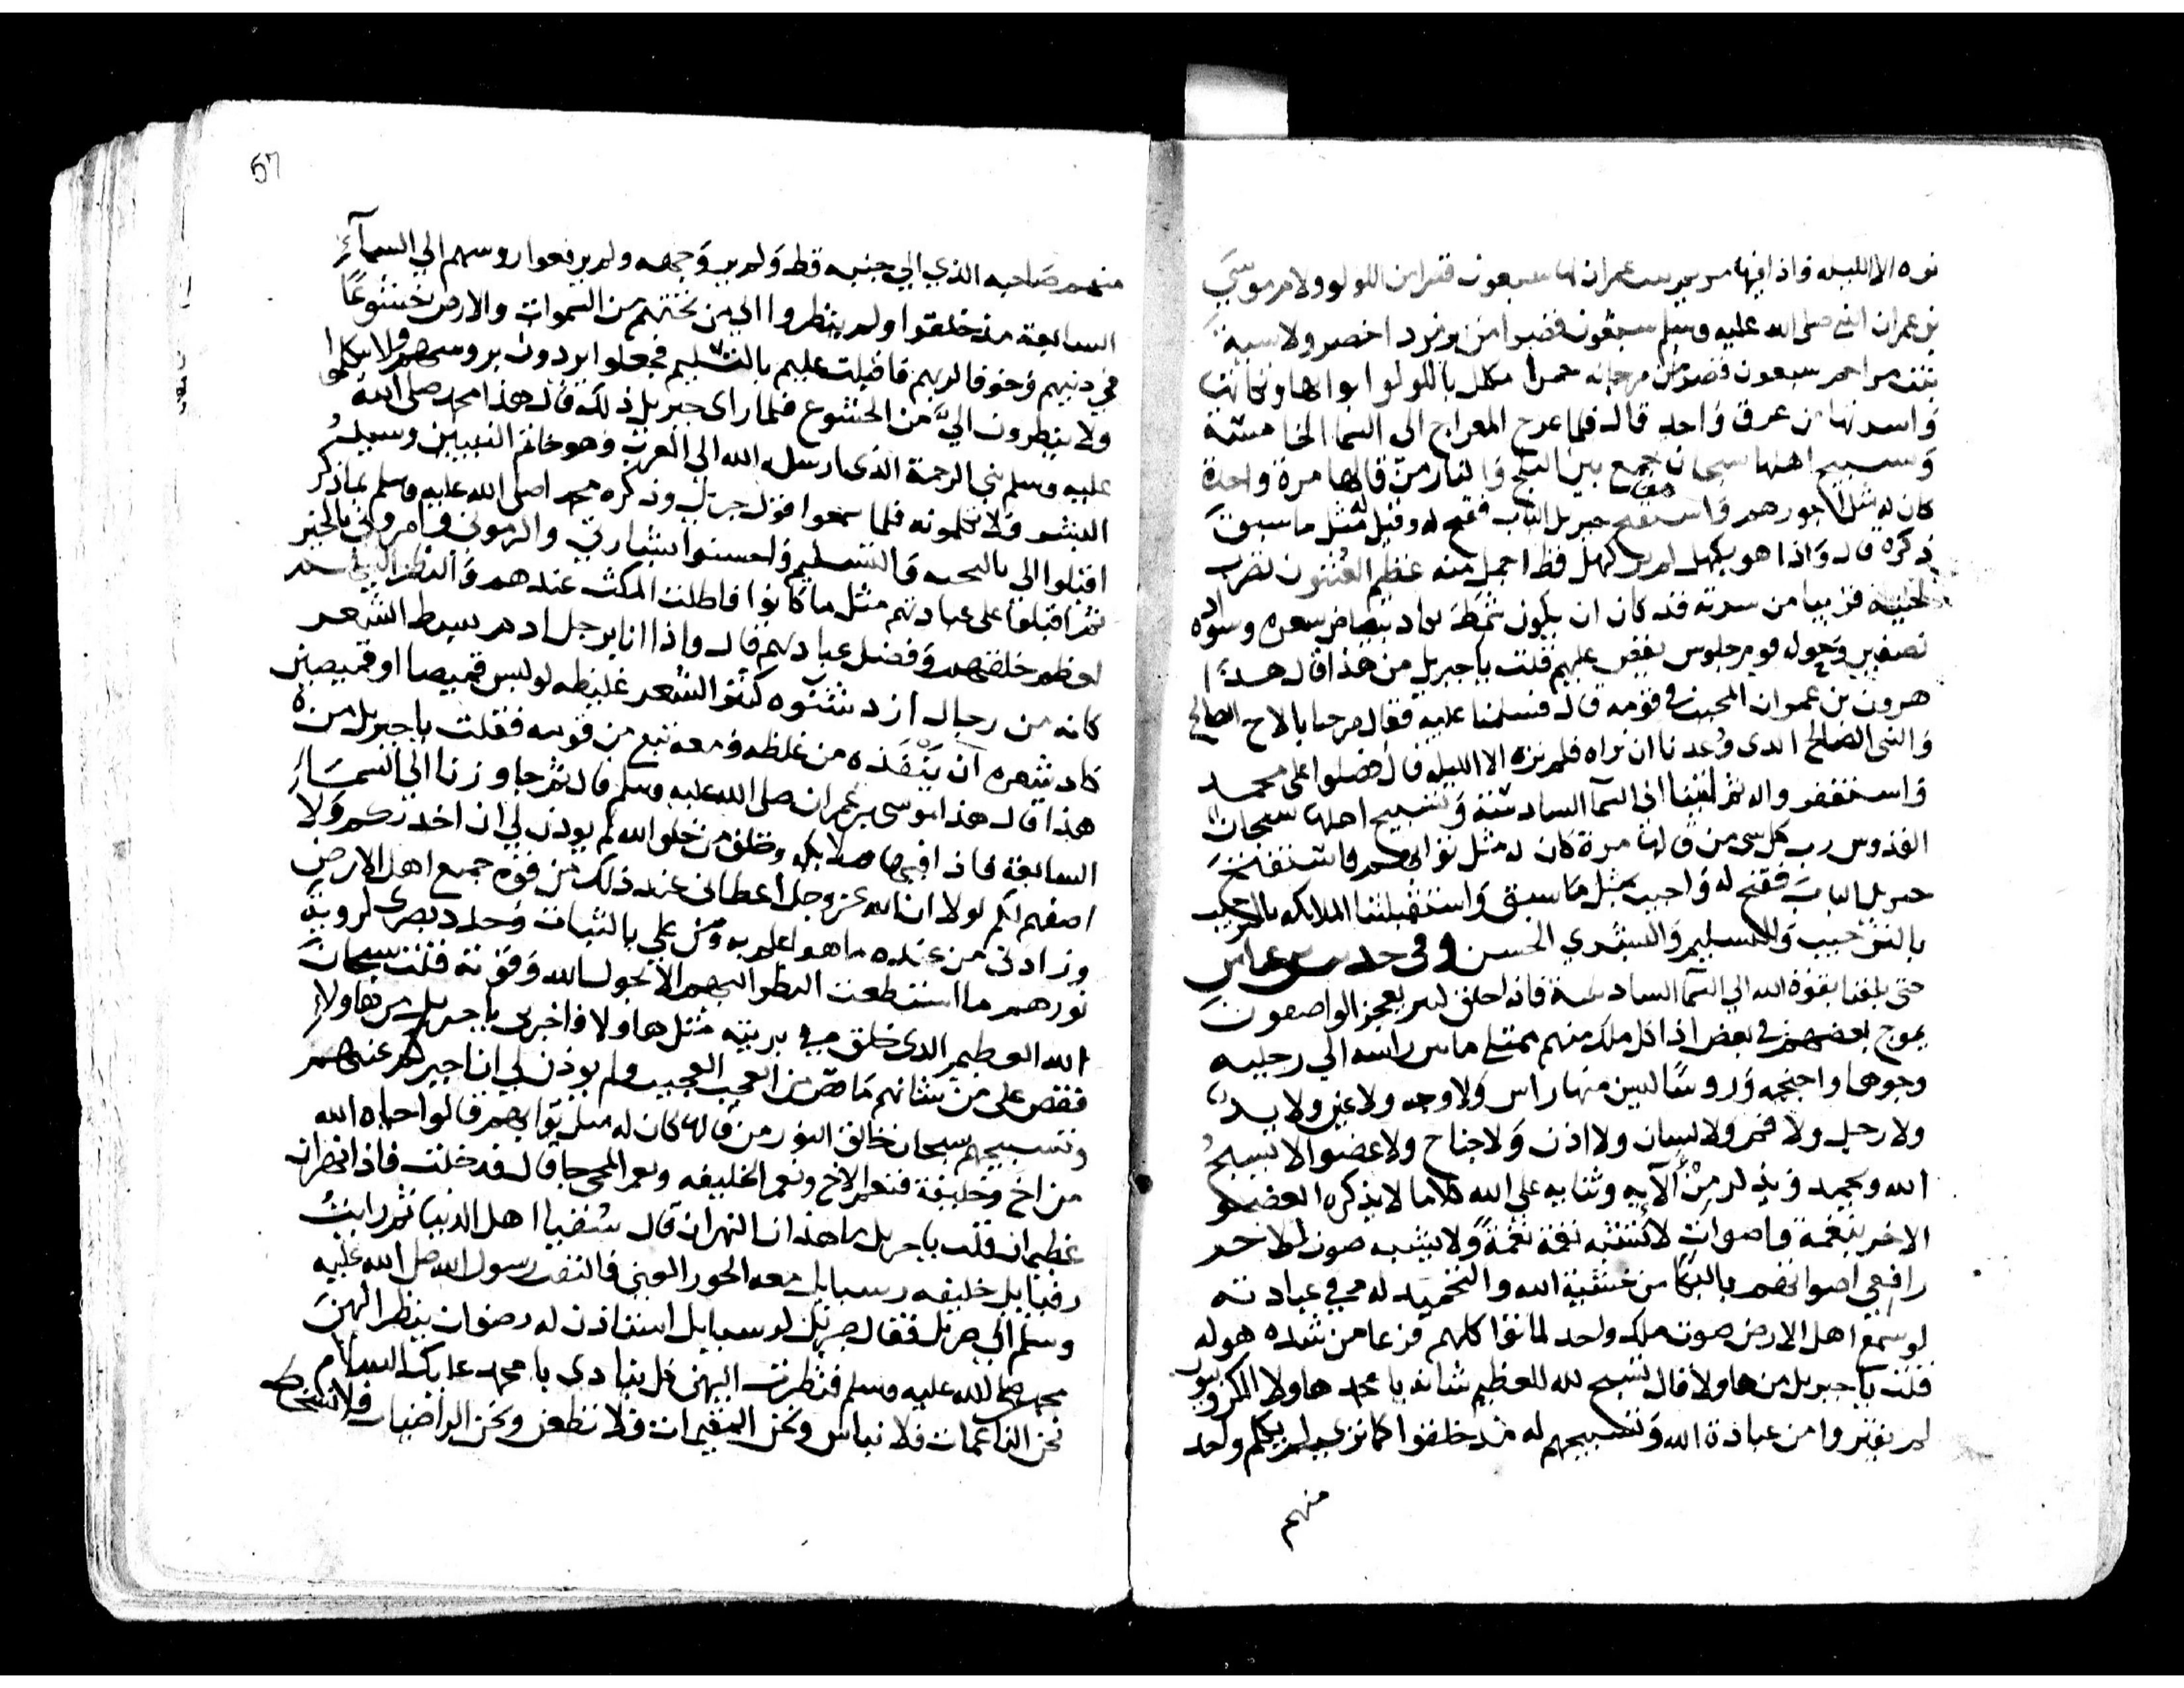 نره الا الليله فاذا فيها مريم بنت عمران لها سبعون قصرا من اللولو ولام موسى
بن عمران النبي صلى الله عليه وسلم سبعون قصرا من زمرد اخضر ولاسية
بنت مزاحم سبعون قصرا من مرجانه حمرا مكلل باللولو ابوابها
واسرتها من عرق واحد قال فلما عرج المعراج الي السما الخامسة
وتسبيح اهلها سبحان جمع بين الثلج والنار من قالها مرة واحدة
كان له مثل اجورهم واستفتح جبريل الباب ففتح له وقيل له مثل ما سبق
ذكره قال واذا هو بكهل لم ير كهل قط اجمل منه عظيم العثنون تضرب
لحيته قريبا من سرته قد كان ان يكون شمطه بياض شعره وسواده
نصفين وحوله قوم جلوس يقص عليهم قلت يا جبريل من هذا قال هذا
هرون بن عمران المحبب في قومه قال فسلمنا عليه فقال مرحبا بالاخ الصالح
والنبي الصالح الذي وعدنا ان نراه فلم نره الا الليله قال فصلوا على محمد
واستغفر واله ثم اتينا الى السما السادسة وتسبيح اهلها سبحان
القدوس رب كل شي من قالها مرة كان له مثل ثوابهم فاستفتح
جبريل الباب ففتح له واجيب بمثل ما سبق واستقبلتنا الملائكه
بالترحيب والتسليم والبشري الحسن وفي حديث بن عباس
حتى بلغنا بقوة الله الي السما السادسة فاذا خلق كثير يعجز الواصفون
يموج بعضهم في بعض اذا كل ملك منهم ممتلي ما بين راسه الي رجليه
وجوها واجنحه وروسا ليس منها راس ولا وجه ولا عين ولا يد
ولا رجل ولا فم ولا لسان ولا اذن ولا جناح ولا عضو الا يسبح
الله ويحمده ويذكر من آلايه وثنايه على الله كلاما لا يذكره العضو
الاخر بنغمة واصوات لا تشبه نغمة نغمة ولا يشبه صوت الاخر
رافعي اصواتهم بالبكا من خشية الله والتحميد له في عبادته
لو سمع اهل الارض صوت ملك واحد لماتوا كلهم فزعا من شده هوله
قلت يا جبريل من هاولا قال تسبح لله العظيم شانه يا محمد هاولا الكروبيون
لم يفتروا من عبادة الله وتسبيحهم له منذ خلقوا كما ترى لم يكلم واحد
منهم
57
منهم صاحبه الذي الي جنبه قط ولم ير وجهه ولم يرفعوا روسهم الي السمآء
السابعة منذ خلقوا ولم ينظروا الي من تحتهم من السموات والارض خشوعا
وخوفا لربهم فاقبلت عليهم بالتسليم فجعلوا يردون بروسهم ولا يكلموا
ولا ينظرون الي من الخشوع فلما راى جبريل ذلك قال هذا محمد صلى الله
عليه وسلم نبي الرحمة الذي ارسله الله الي العرب وهو خاتم النبيين وسيد
البشر ولا تكلمونه فلما سمعوا قول جبريل وذكره محمد صلى الله عليه وسلم بما ذكر
اقبلوا الي بالتحيه والتسليم واحسنوا بشارتي واكرموني وامروني بالخير
ثم اقبلوا على عبادتهم مثل ما كانوا فاطلت المكث عندهم والنظر اليهم
لعظم خلقهم وفضل عبادتهم قال واذا انا برجل ادم سبط الشعر
كانه من رجال ازد شنوه كثير الشعر غليظه لو لبس قميصا او قميصين
كاد شعره ان ينفذه من غلظه ومعه تبع من قومه فقلت يا جبريل من
هذا قال هذا موسى بن عمران صلى الله عليه وسلم قال ثم جاوزنا الي السماء
السابعة فاذا فيها ملايكه وخلق من خلق الله لم يوذن لي ان احدثكم ولا
اصفهم لكم لولا ان الله عز وجل اعطاني عند ذلك من قوة جميع اهل الارض
وزادني من عنده ما هو اعلم به ومن علي بالثبات وحدد بصري لروية
نورهم ما استطعت النظر اليهم الا بحول الله وقوته فقلت سبحان
الله العظيم الذي خلق من بريته مثل هاولا فاخبرني يا جبريل من هاولاء
فقص علي من شانهم ما قص من العجب العجيب ولم يوذن لي ان اخبركم عنهم
وتسبيحهم سبحان خالق النور من قالها كان له مثل ثوابهم قالوا حياه الله
من اخ وخليفة فنعم الاخ ونعم الخليفه ونعم المجي جا قال فدخلت فاذا نهران
عظيمان قلت يا جبريل ما هذان النهران قال سقيا اهل الدنيا ثم رايت
خليفه معه الحور العين فالتفت رسول الله صلى الله عليه
وسلم الي جبريل فقال جبريل استاذن له رضوان ينظر اليهن
محمد صلى الله عليه وسلم فنظرت اليهن كل ينادي يا محمد عليك السلام
نحن الناعمات فلا نباس ونحن المقيمات فلا نظعن ونحن الراضيات فلا نسخط